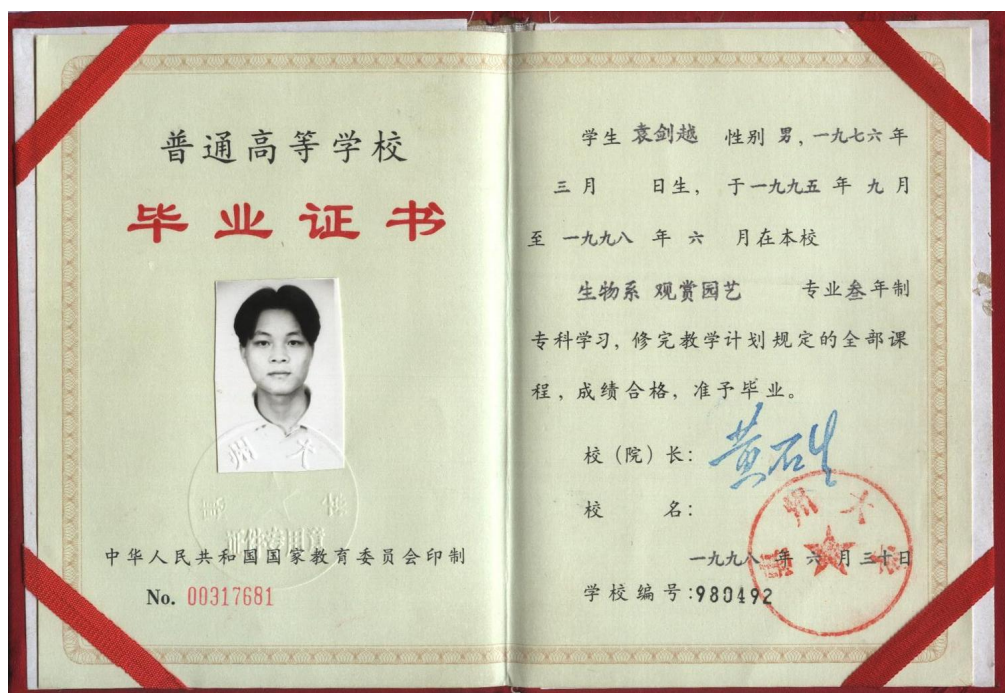 普通高等学校
毕业证书
中华人民共和国国家教育委员会印制
No. 00317681
学生 袁剑越 性别 男，一九七六年
三月 日生，于一九九五年 九月
至 一九九八 年 六 月在本校
生物系 观赏园艺 专业叁年制
专科学习，修完教学计划规定的全部课
程，成绩合格，准予毕业。
校（院）长：黄石生
校 名：
一九九八年六月三十日
学校编号：980492